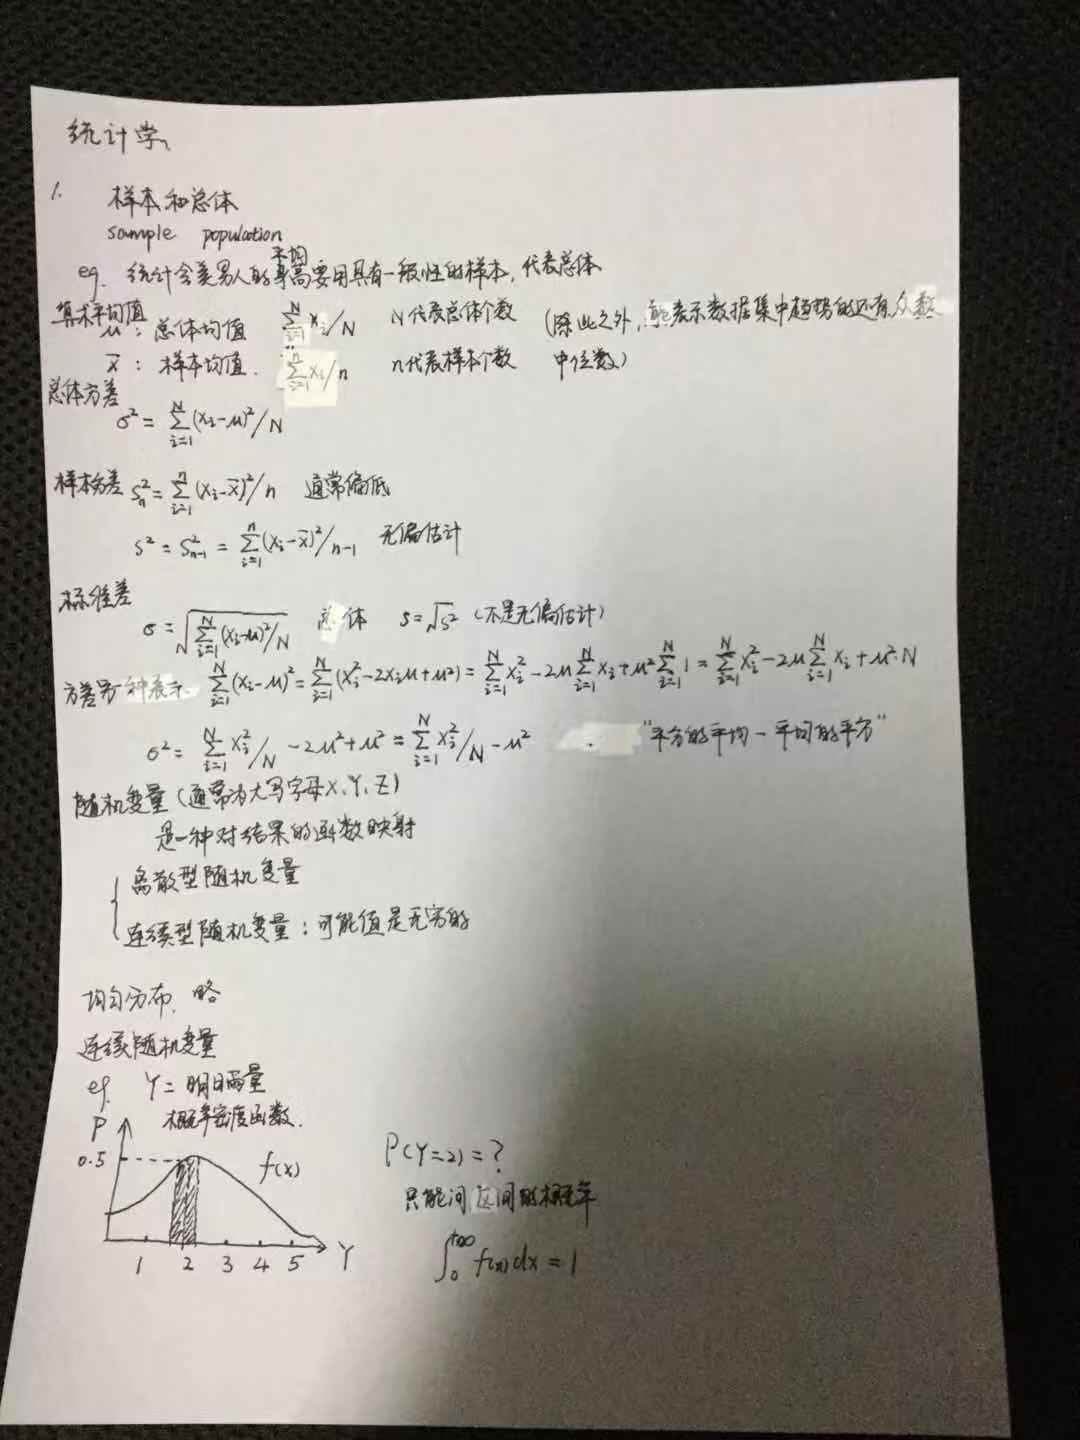 统计学
1. 样本和总体
sample population
eg. 统计全美男人的平均身高要用具有一般性的样本，代表总体
算术平均值
μ：总体均值 \sum_{i=1}^{N} x_i/N N代表总体个数 （除此之外，能表示数据集中趋势的还有众数
x̄：样本均值. \sum_{i=1}^{n} x_i/n n代表样本个数 中位数）
总体方差
σ² = \sum_{i=1}^{N} (x_i-μ)²/N
样本方差 S_n² = \sum_{i=1}^{n} (x_i-x̄)²/n 通常偏低
S² = S_{n-1}² = \sum_{i=1}^{n} (x_i-x̄)²/n-1 无偏估计
标准差
σ = \sqrt{\sum_{i=1}^{N} (x_i-μ)²/N} 总体 S=\sqrt{S²} （不是无偏估计）
方差另一种表示 \sum_{i=1}^{N} (x_i-μ)² = \sum_{i=1}^{N} (x_i²-2x_iμ+μ²) = \sum_{i=1}^{N} x_i² - 2μ\sum_{i=1}^{N} x_i + μ²\sum_{i=1}^{N} 1 = \sum_{i=1}^{N} x_i² - 2μ\sum_{i=1}^{N} x_i + μ²·N
σ² = \sum_{i=1}^{N} x_i²/N - 2μ² + μ² = \sum_{i=1}^{N} x_i²/N - μ² “平方的平均－平均的平方”
随机变量（通常为大写字母X、Y、Z）
是一种对结果的函数映射
离散型随机变量
连续型随机变量：可能值是无穷的
均匀分布. 略
连续随机变量
eg. Y = 明日雨量
P 概率密度函数.
0.5 f(x)
1 2 3 4 5 Y
P(Y=2) = ?
只能问区间的概率
\int_0^{+∞} f(x)dx = 1